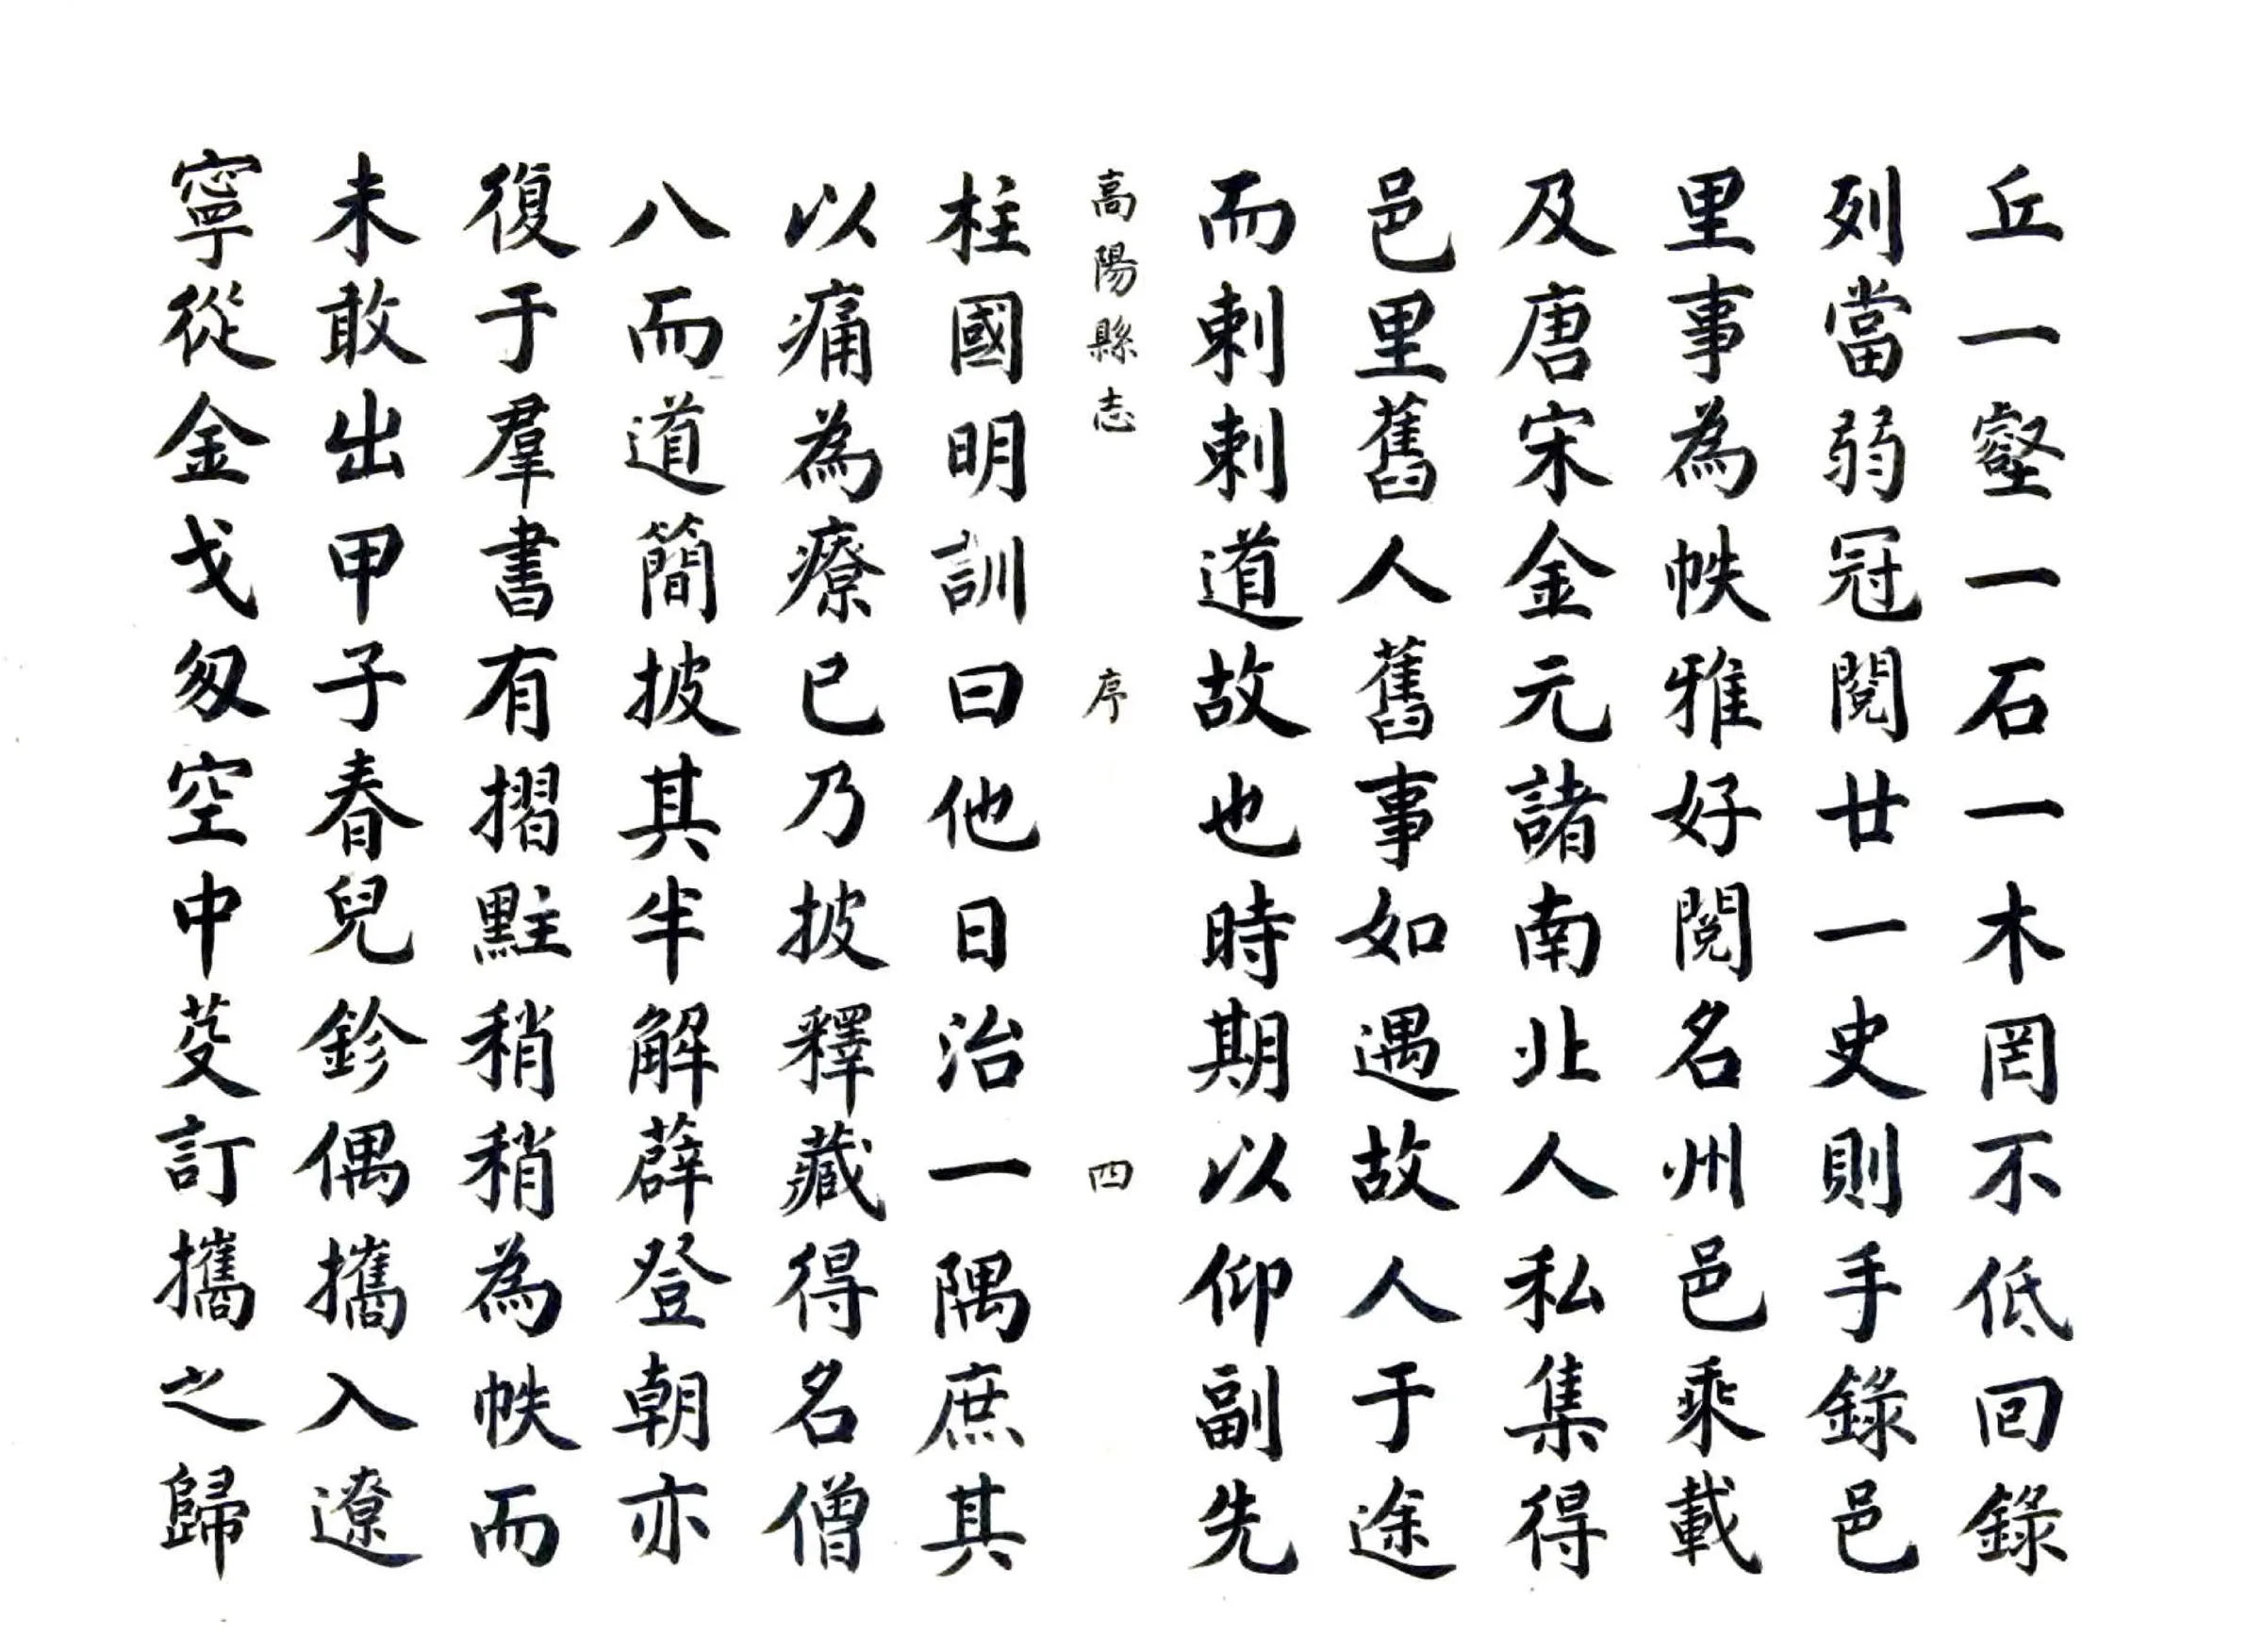 丘一壑一石一木罔不低回錄
列當弱冠閱廿一史則手錄邑
里事為帙雅好閱名州邑乘載
及唐宋金元諸南北人私集得
邑里舊人舊事如遇故人于途
而剌剌道故也時期以仰副先
高陽縣志 序 四
柱國明訓曰他日治一隅庶其
以痛為療已乃披釋藏得名僧
八而道簡披其半解薜登朝亦
復于羣書有摺黈稍稍為帙而
未敢出甲子春兒鉁偶攜入遼
寧從金戈匆空中芟訂攜之歸